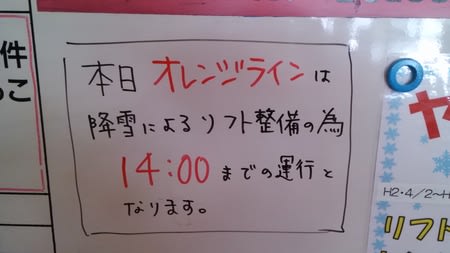 本日 オレンジラインは
降雪によるリフト整備の為
14:00 までの運行と
なります。
件
H2・4/2～H
リフト